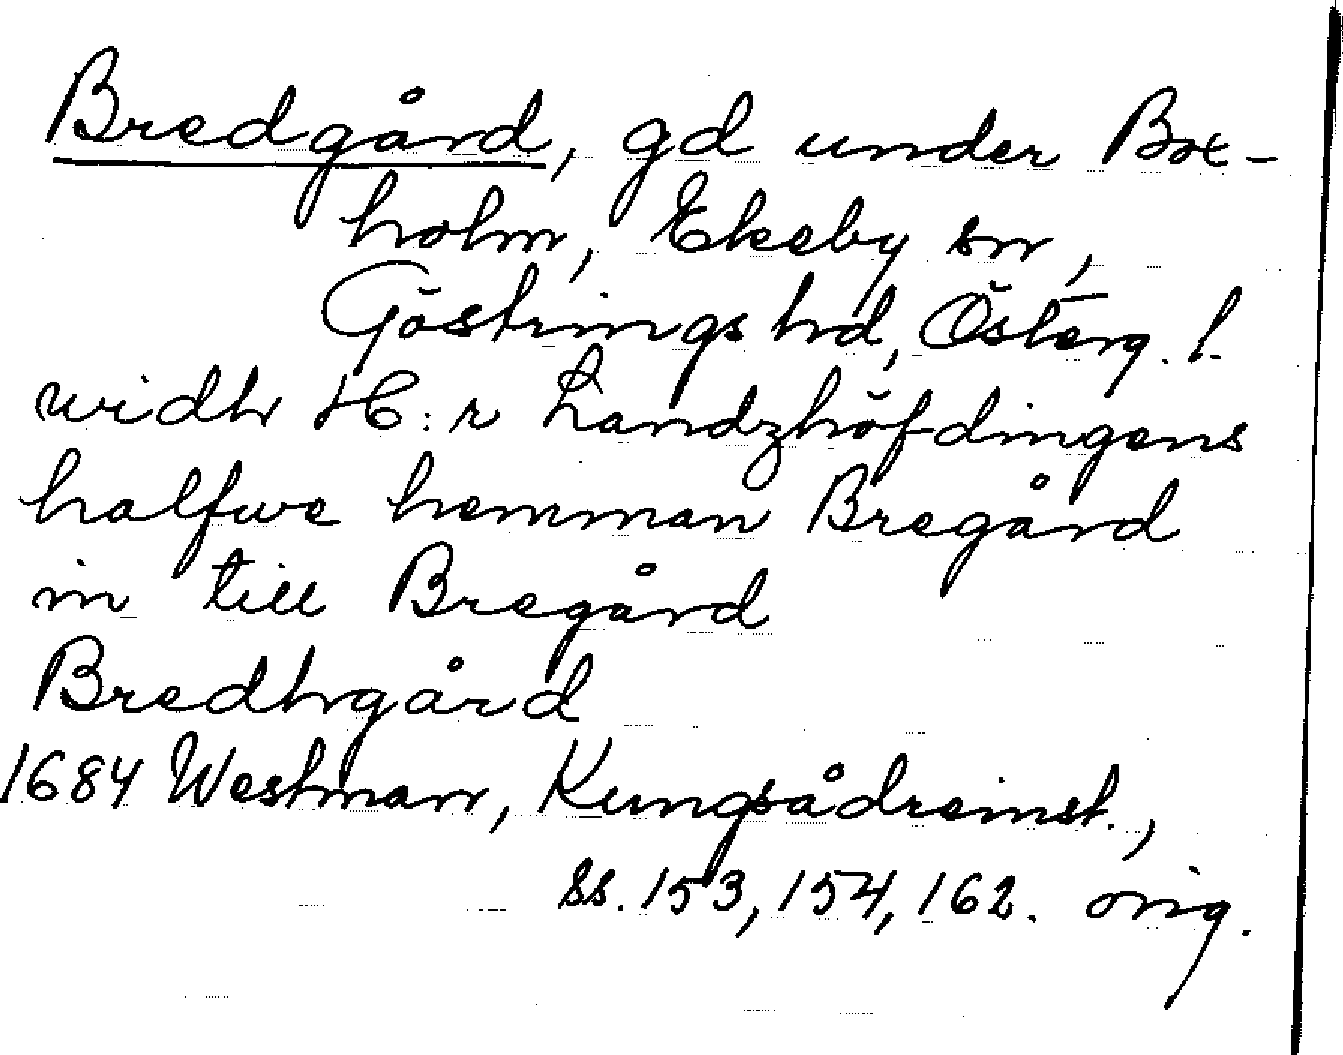 Bredgård, gd under Box-
holm, Ekeby sn,
Göstrings hd, Österg. l.
widh H:r Landzhöfdingens
halfwe hemman Bregård
in till Bregård
Bredhgård
1684 Westman, Kungsådreinst.,
ss. 153, 154, 162. orig.